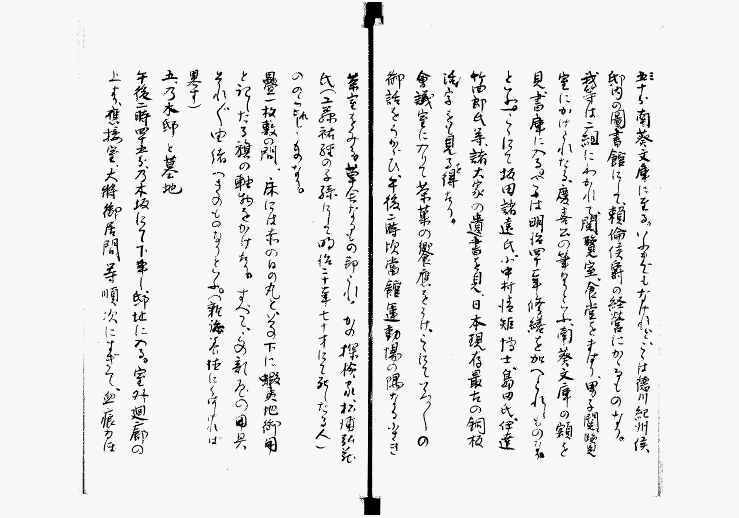 五十分南葵文庫に至る。いふまでもなけれど、こは徳川紀州侯
邸内の圖書館にして、頼倫侯爵の経営にかゝるものなり。
我等は二組にわかれて、閲覧室、食堂をすぎ、男子閲覧
室にかけられたる、慶喜公の筆なりといふ南葵文庫の額を
見、書庫に入る。こは明治四十一年修繕を加へられしものなり
といふ。こゝにて坂田諸遠氏、小中村清矩博士、島田氏、伊達
竹四郎氏等諸大家の遺書を見、日本現存最古の銅板
活字をも見るを得たり。
會議室に入りて茶菓の饗應をうけ、こゝにていろ〱の
御話をうかゞひ、午後二時頃當館運動場の隅なる小さき
茶室をみる。草舎なるもの即これ、かの探検家松浦弘
氏(工藤祐経の子孫にして明治二十一年七十才にて死したる人)
のものなり。
疊一枚敷の間、床には赤の日の丸とその下に蝦夷地御用
と記したる旗の軸物をかけたり。すべてこの部屋の用具
それ〲由緒へきのものなりといふ。
果す)
五、乃木邸と墓地
午後二時四十五分乃木坂にて下車し邸址に入る。室外廻廊の
上より、應接室、大將御居間等順次にすぎて、血痕力は